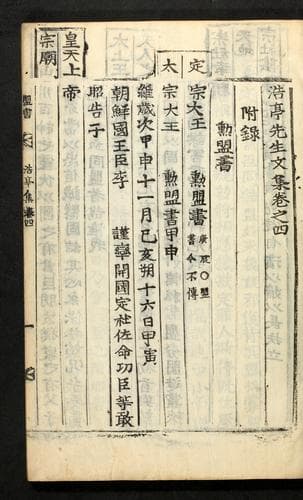 浩亭先生文集卷之四
附錄
勳盟書
定宗大王 勳盟書 庚辰〇盟書今不傳
太宗大王 勳盟書甲申
維歲次甲申十一月己亥朔十六日甲寅
朝鮮國王臣李 謹率開國定社佐命功臣等敢
昭告于
皇天上帝
宗廟
盟書
浩亭集卷四
一